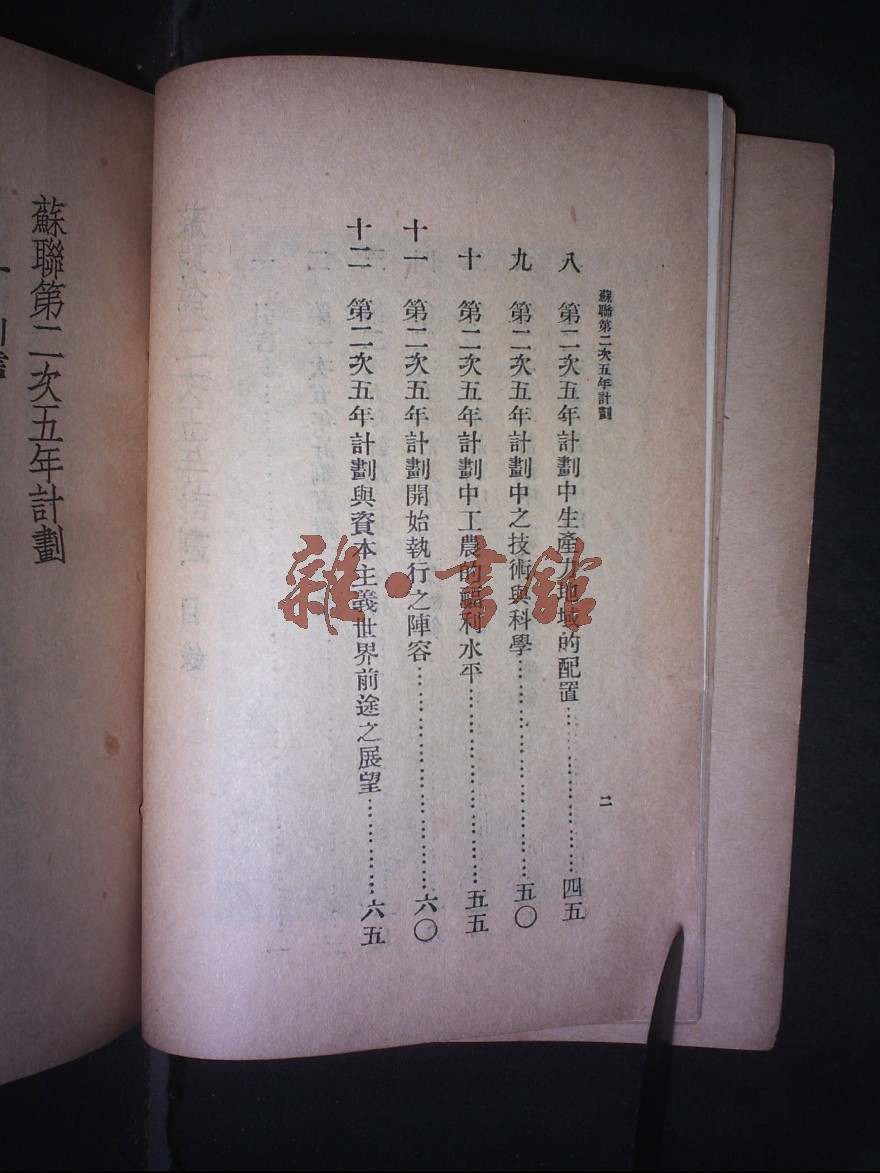 蘇聯第二次五年計劃
二
八 第二次五年計劃中生產力地域的配置……………………四五
九 第二次五年計劃中之技術與科學……………………五〇
十 第二次五年計劃中工農的福利水平……………………五五
十一 第二次五年計劃開始執行之陣容……………………六〇
十二 第二次五年計劃與資本主義世界前途之展望…………六五
蘇聯第二次五年計劃
雜·書館